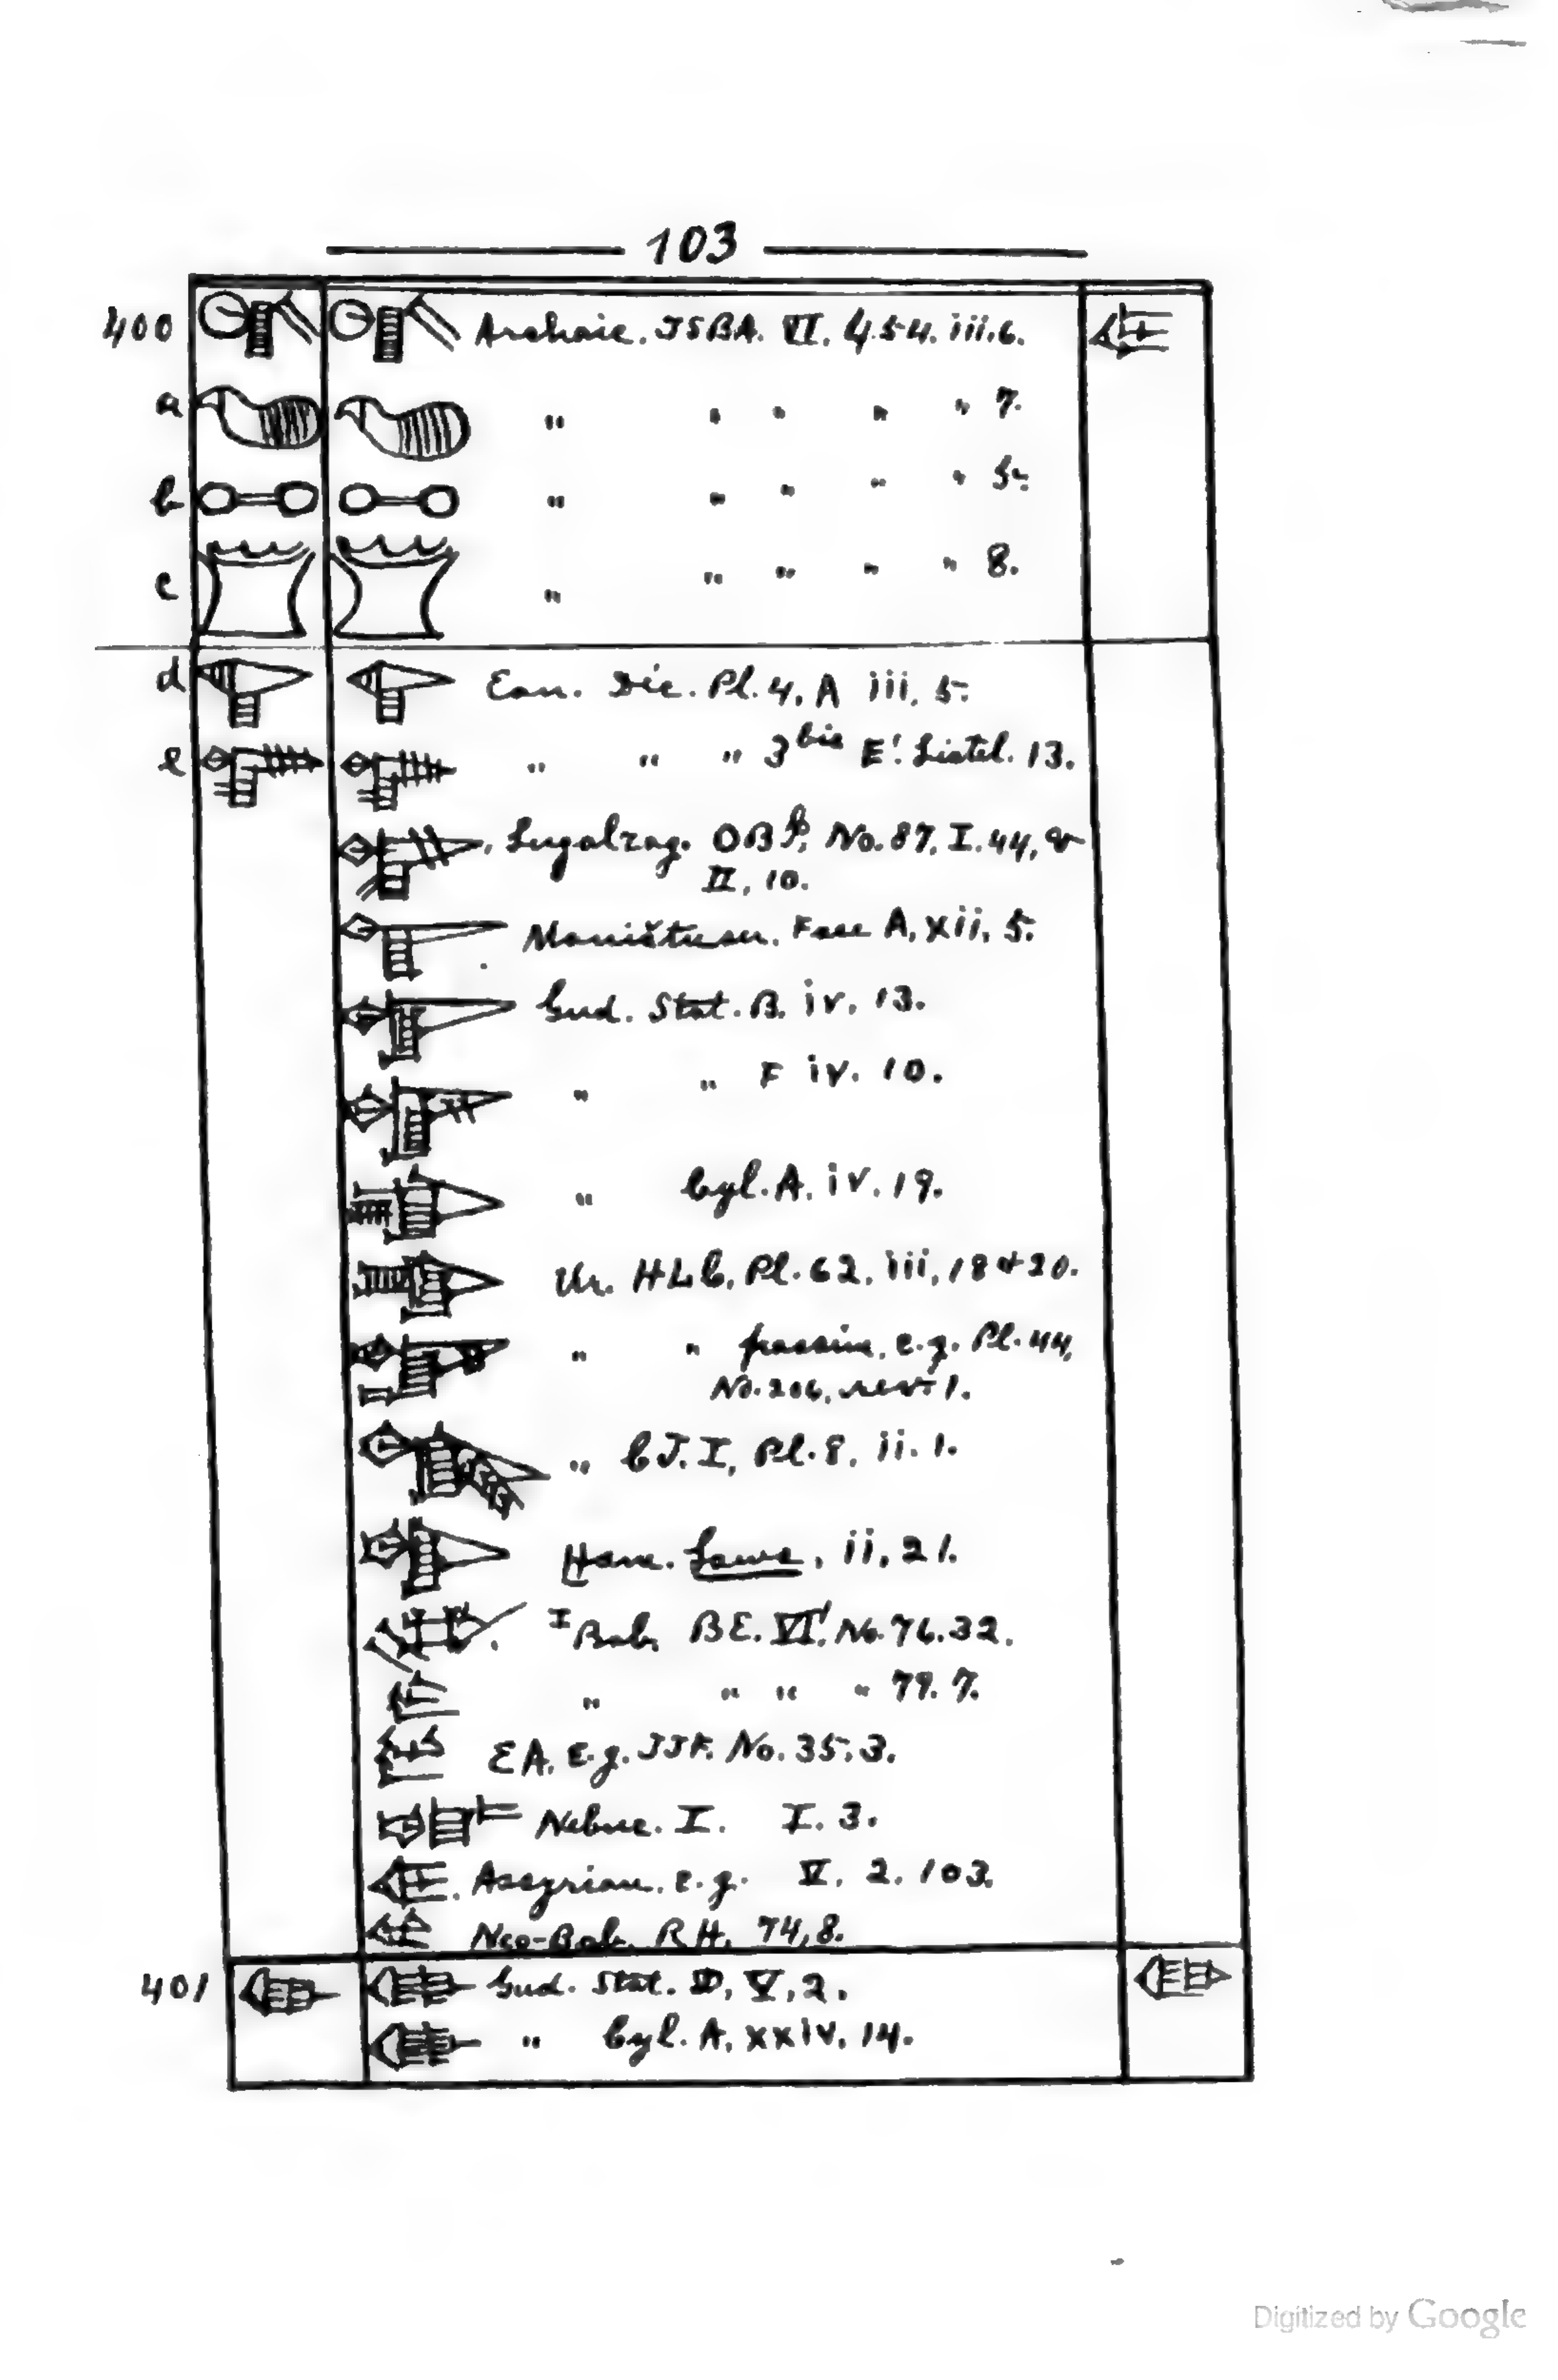 103
400 Archaic. TSBA. VI. 454. iii. 6.
a " " " " " 7.
b " " " " " 5.
c " " " " " 8.
d Ean. Déc. Pl. 4, A iii, 5.
e " " " 3bis E! Listel. 13.
Lugalzag. OBI, No. 87, I. 44, &
II, 10.
Maništusu. Face A, xii, 5.
Gud. Stat. B. iv. 13.
" " F iv. 10.
" Cyl. A. iv. 19.
Ur. HLC, Pl. 62, iii, 18 & 20.
" " passim, e.g. Pl. 44,
No. 206, rev. 1.
" CT. I, Pl. 8, ii. 1.
Ham. Laws, ii, 21.
I Bab. BE. VI! No. 76. 32.
" " " " 79. 7.
EA. E.g. No. 35. 3.
Nebuc. I. I. 3.
Assyrian. e.g. V. 2. 103.
Neo-Bab. RH. 74, 8.
401 Gud. Stat. D, V, 2.
" Cyl. A. xxiv. 14.
Digitized by Google